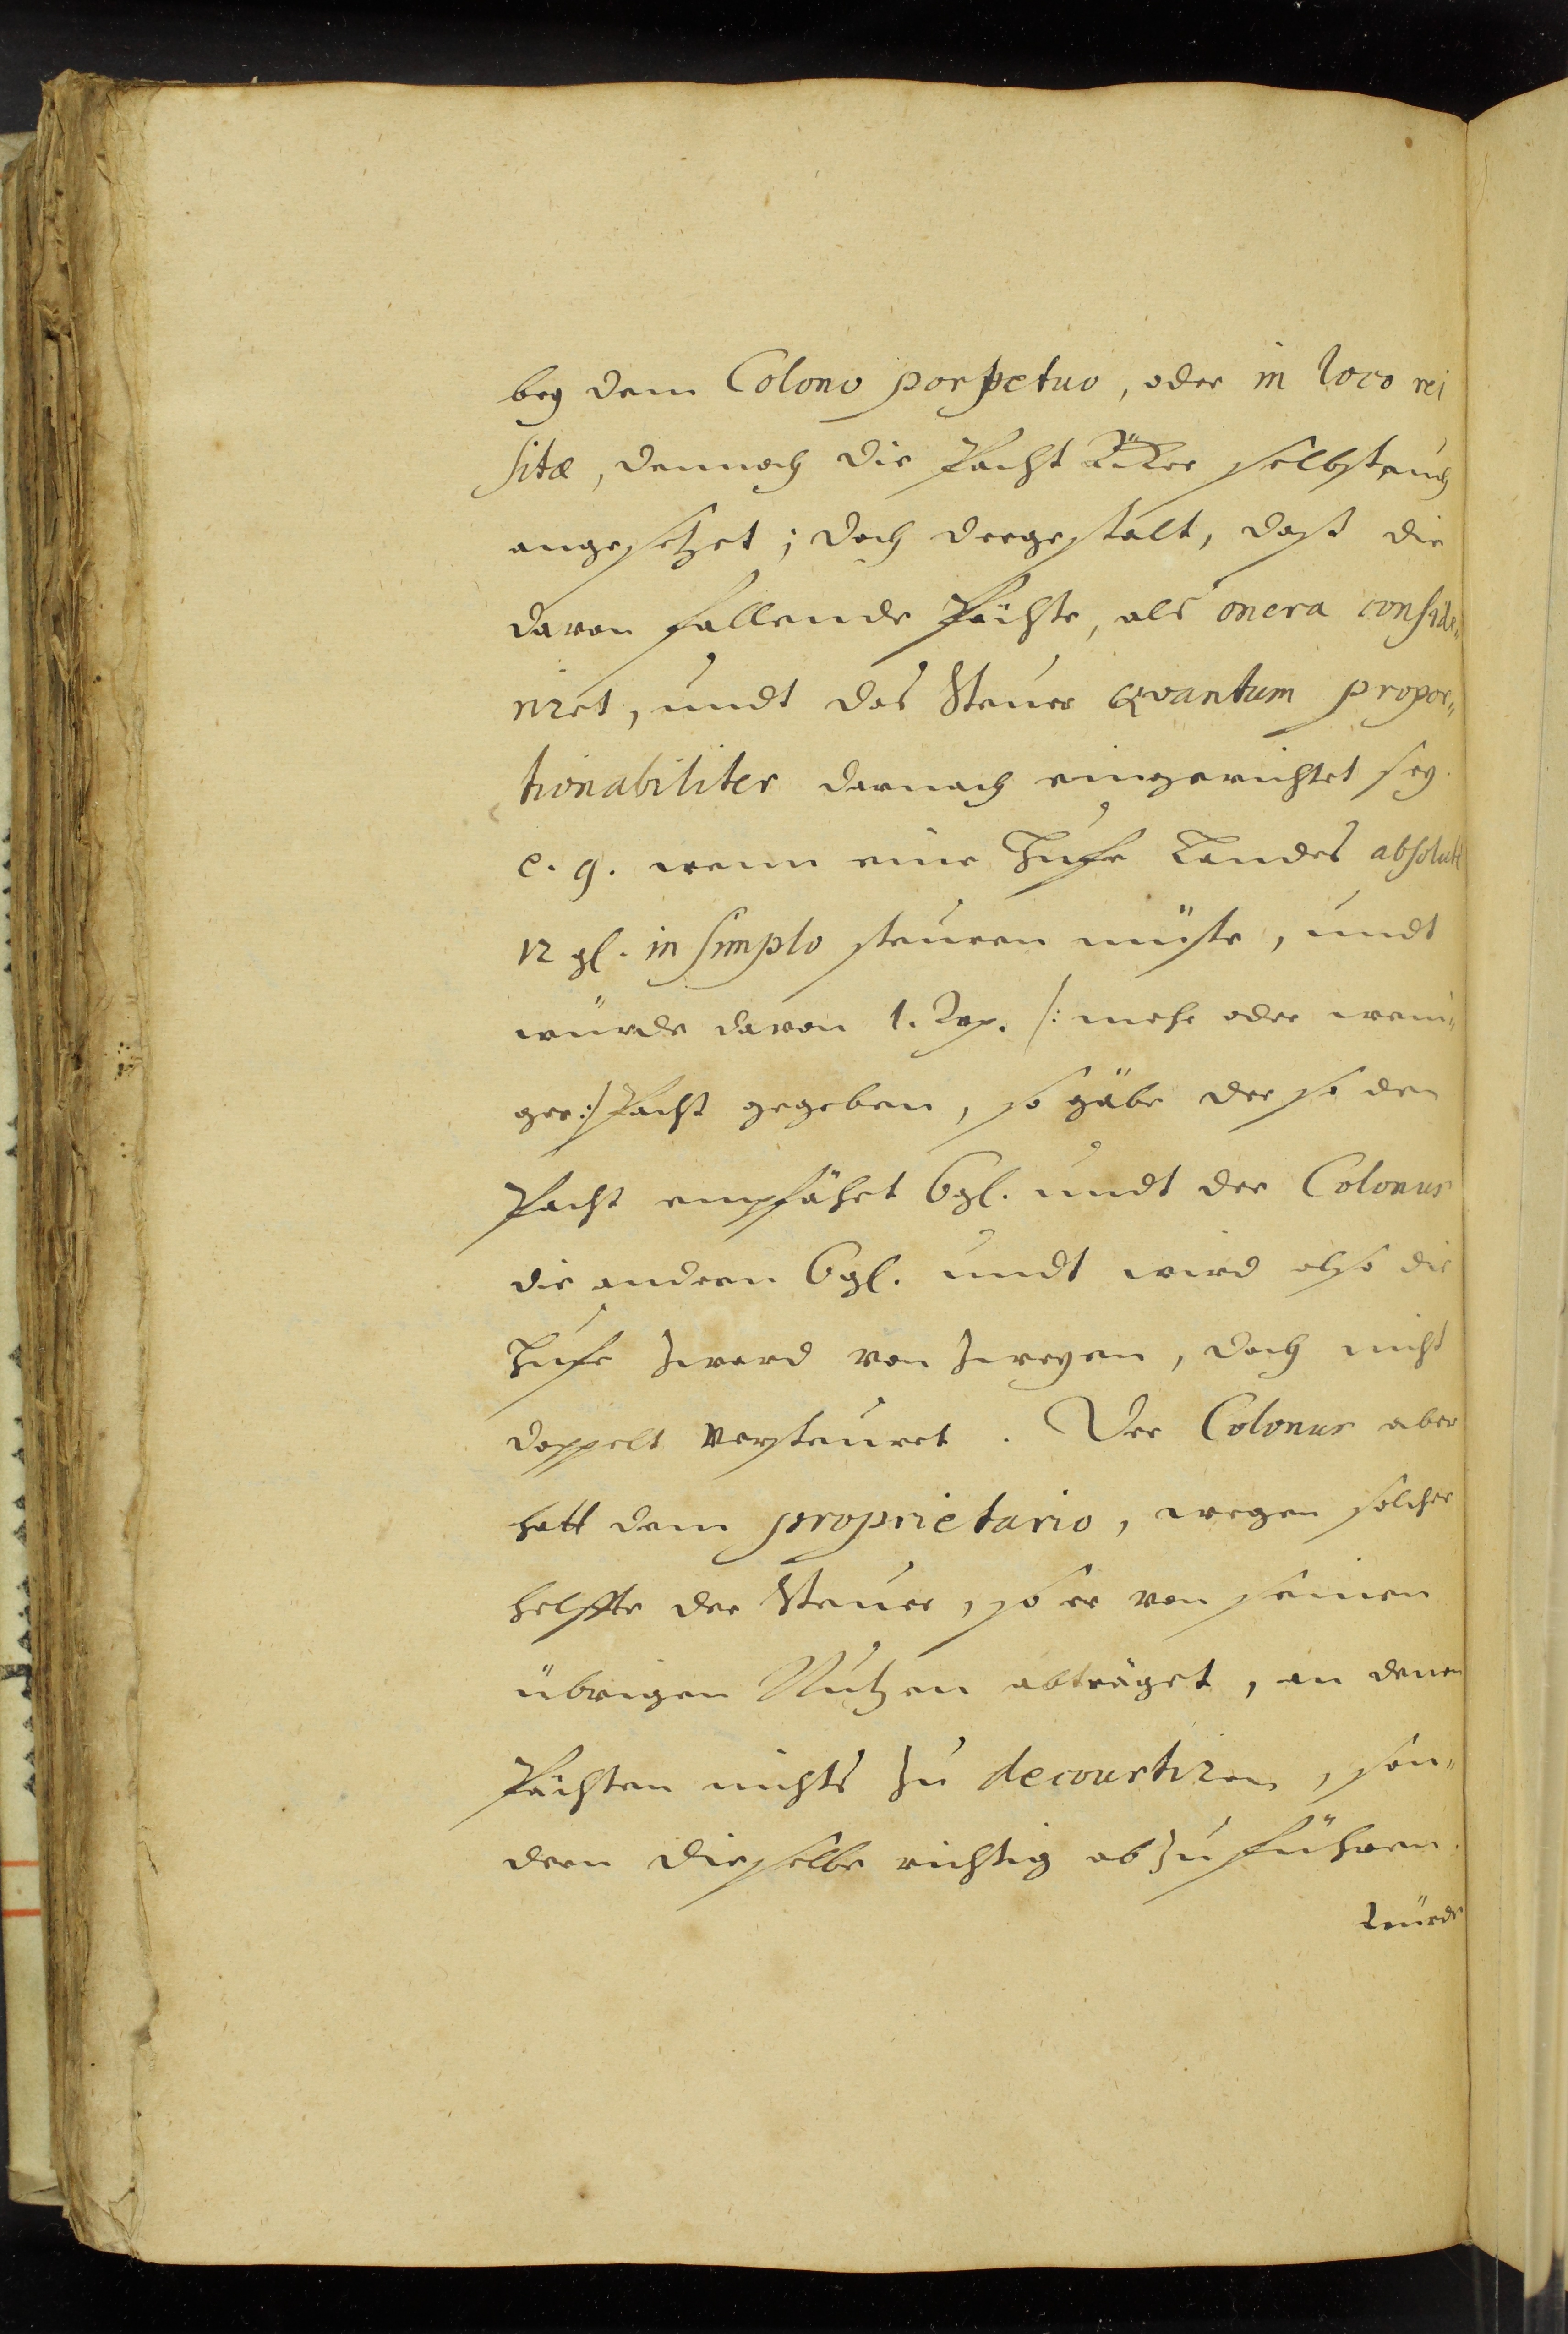 bey dem Colono perpetuo, oder in loco rei
sitæ, dennoch die Pacht Äcker selbst auch
angesetzet; doch dergestalt, daß die
davon fallende Pächte, als onera conside„
riret, undt das Steuer Qvantum propor„
tionabiliter darnach eingerichtet sey.
e. g. wenn eine Hufe Landes absolute
12 gl. in simplo steuren müste, undt
würde davon 1. /: mehr oder weni„
ger :/ Pacht gegeben, so gäbe der so den
Pacht empfähet 6 gl. undt der Colonus
die andern 6 gl. undt wird also die
Hufe zward von zweyen, doch nicht
doppelt versteuret. Der Colonus aber
hatt dem proprietario, wegen solcher
helffte der Steuer, so er von seinen
übrigen Nutzen abträget, an denen
Pächten nichts zu decourtiren, son„
dern dieselbe richtig abzuführen.
Würde